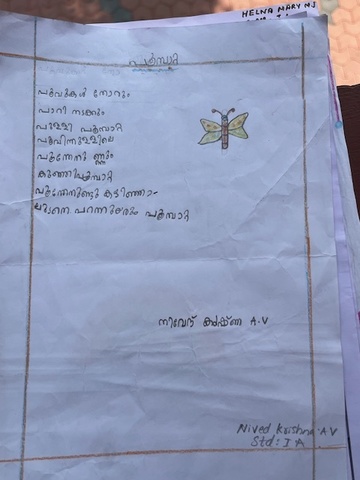 HELNA MARY N J
പൂമ്പാറ്റ
പൂവുകൾ തോറും
പാറി നടക്കും
പുള്ളി പൂമ്പാറ്റ
പൂവിനുള്ളിലെ
പൂന്തേനുണ്ണും
കുഞ്ഞിപൂമ്പാറ്റ
പൂന്തേനുണ്ടു കഴിഞ്ഞാ-
ലുടനെ പറന്നുയരും പൂമ്പാറ്റ
നിവേദ് കൃഷ്ണ A.V
Nived Krishna A V
Std: I A